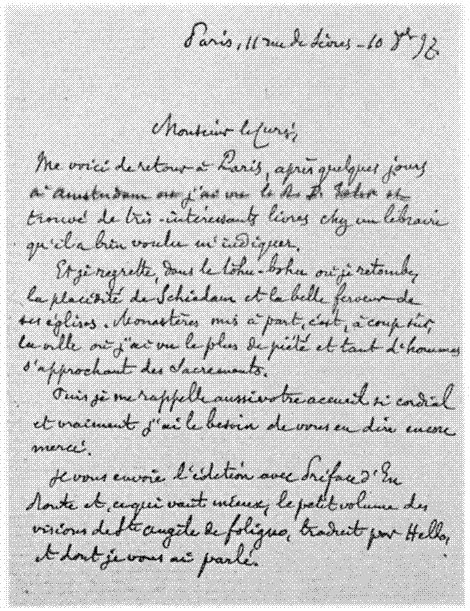 Paris, 11 rue de Sèvres - 10 8bre 97.
Monsieur le Curé,
Me voici de retour à Paris, après quelques jours
à Amsterdam où j'ai vu le R. P. et
trouvé de très-intéressants livres chez un libraire
qu'il a bien voulu m'indiquer.
Et je regrette, dans le tohu-bohu où je retombe,
la placidité de Schiedam et la belle ferveur de
ses églises. Monastères mis à part, c'est, à coup sûr,
la ville où j'ai vu le plus de piété et tant d'hommes
s'approchant des Sacrements.
Puis je me rappelle aussi votre accueil si cordial
et vraiment j'ai le besoin de vous en dire encore
merci.
Je vous envoie l'édition avec Préface d'En
Route et, ce qui vaut mieux, le petit volume des
visions de Ste Angèle de Foligno, traduit par Hello,
et dont je vous ai parlé.